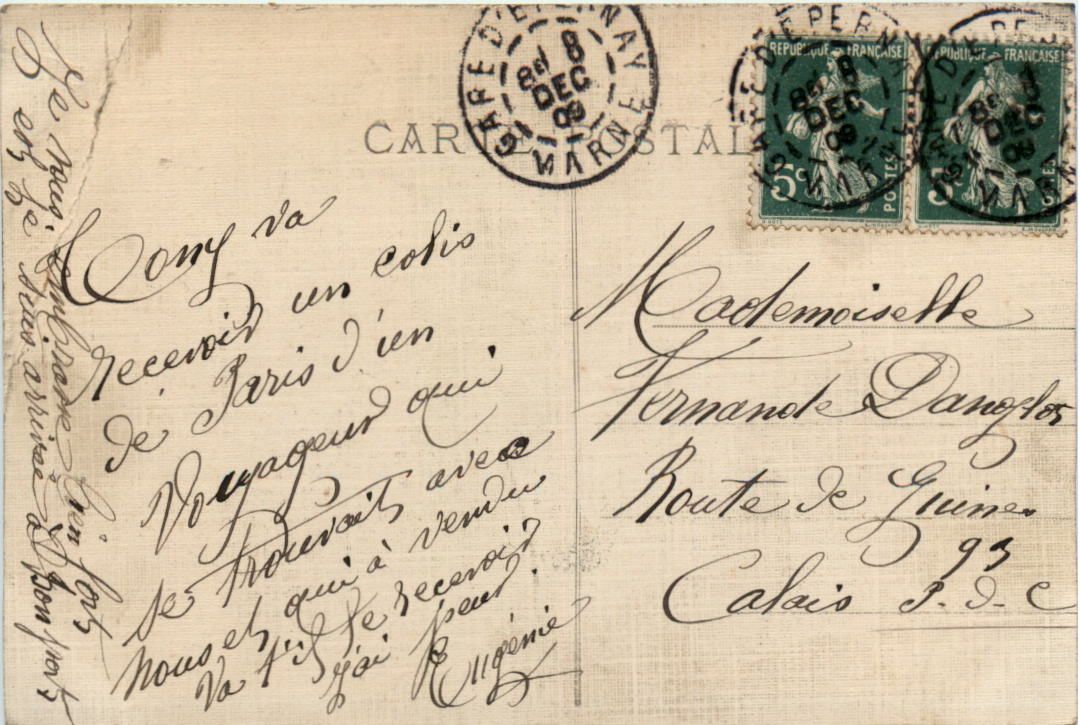 CARTE POSTALE
GARE D'EPERNAY
8E
8
DEC
09
MARNE
REPUBLIQUE FRANÇAISE
5c
POSTES
REPUBLIQUE FRANÇAISE
5c
Tony va
recevoir un colis
de Paris d'un
Voyageur qui
se trouvait avec
nous et qui à vendu
Va t'il le recevoir
j'ai peur.
Eugénie
Je vous embrasse bien fort
et j'é suis arrivé à bon port
Mademoiselle
Fernande Danglos
Route de Guines
93
Calais P-d-C